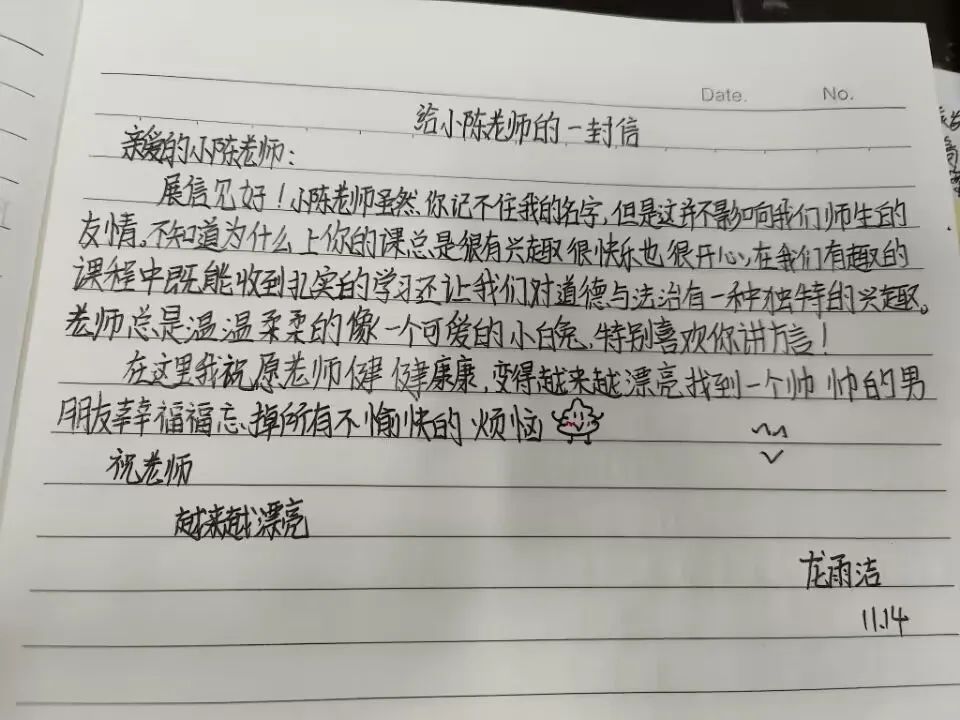 Date. No.
给小陈老师的一封信
亲爱的小陈老师：
展信见好！小陈老师虽然你记不住我的名字，但是这并不影响我们师生的
友情。不知道为什么上你的课总是很有兴趣很快乐也很开心，在我们有趣的
课程中既能收到扎实的学习还让我们对道德与法治有一种独特的兴趣。
老师总是温温柔柔的像一个可爱的小白兔，特别喜欢你讲方言！
在这里我祝愿老师健健康康，变得越来越漂亮找到一个帅帅的男
朋友幸幸福福忘掉所有不愉快的烦恼
祝老师
越来越漂亮
龙雨洁
11.14